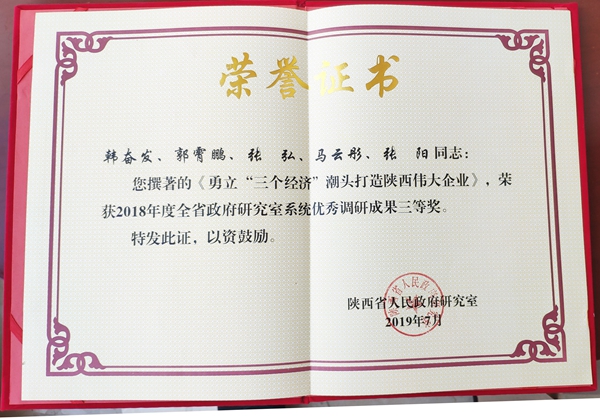 荣誉证书
韩奋发、郭霄鹏、张 弘、马云彤、张 阳同志：
您撰著的《勇立“三个经济”潮头打造陕西伟大企业》，荣
获2018年度全省政府研究室系统优秀调研成果三等奖。
特发此证，以资鼓励。
陕西省人民政府研究室
2019年7月